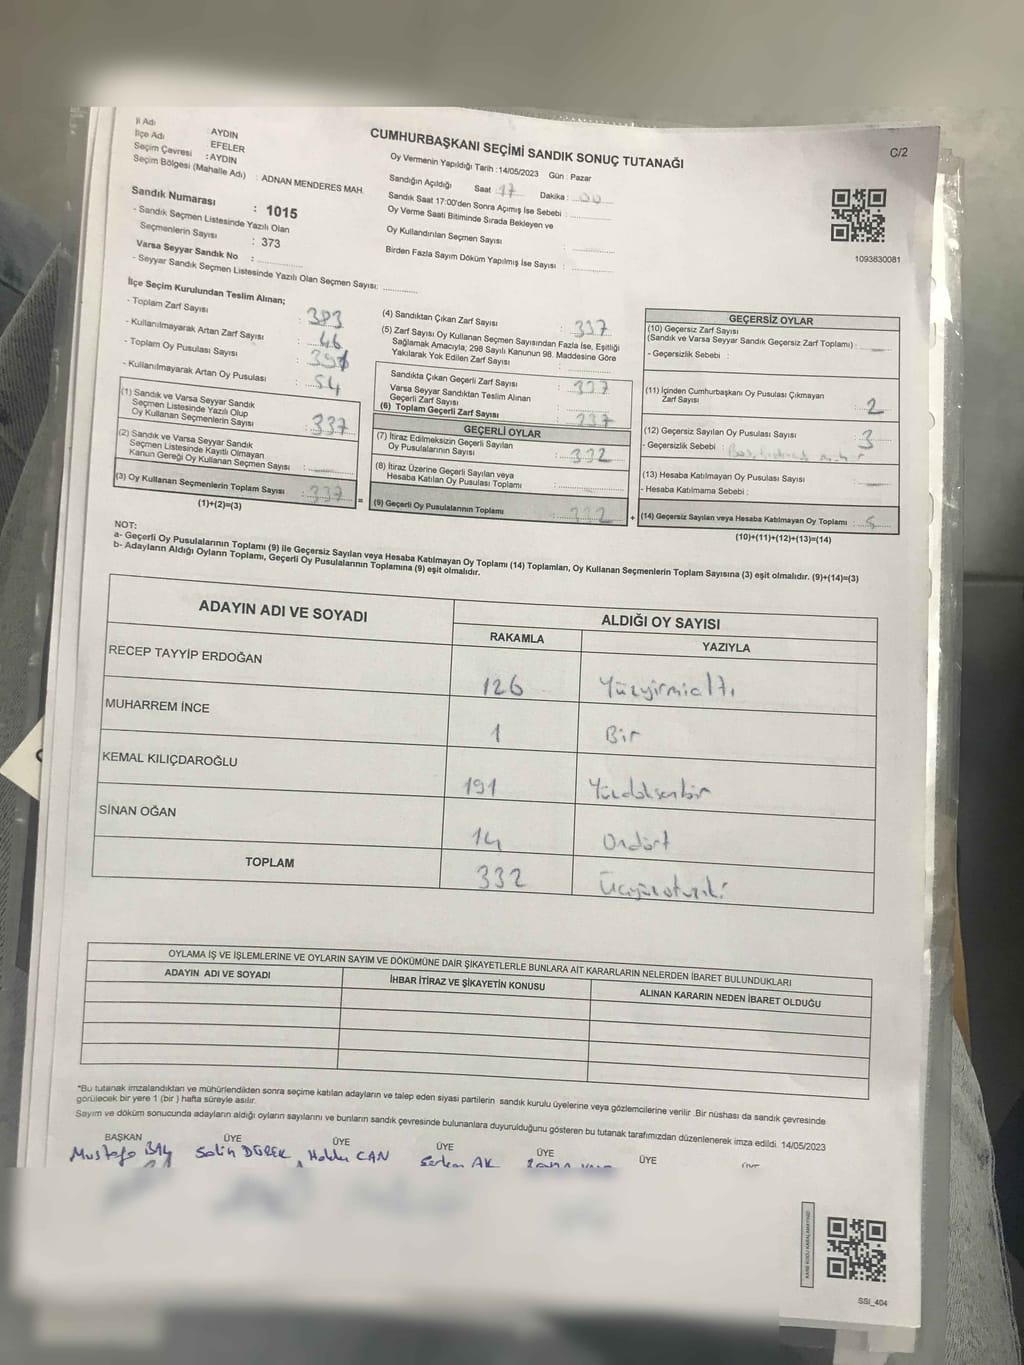 İl Adı : AYDIN
İlçe Adı : EFELER
Seçim Çevresi : AYDIN
Seçim Bölgesi (Mahalle Adı) : ADNAN MENDERES MAH.
CUMHURBAŞKANI SEÇİMİ SANDIK SONUÇ TUTANAĞI
C/2
Oy Vermenin Yapıldığı Tarih : 14/05/2023 Gün : Pazar
Sandığın Açıldığı Saat : 17 Dakika : 00
Sandık Saat 17:00'den Sonra Açımış İse Sebebi :
Oy Verme Saati Bitiminde Sırada Bekleyen ve
Oy Kullandırılan Seçmen Sayısı :
Birden Fazla Sayım Döküm Yapılmış İse Sayısı :
1093830081
Sandık Numarası : 1015
- Sandık Seçmen Listesinde Yazılı Olan
Seçmenlerin Sayısı : 373
Varsa Seyyar Sandık No :
- Seyyar Sandık Seçmen Listesinde Yazılı Olan Seçmen Sayısı:
İlçe Seçim Kurulundan Teslim Alınan;
- Toplam Zarf Sayısı : 383
- Kullanılmayarak Artan Zarf Sayısı : 46
- Toplam Oy Pusulası Sayısı :
- Kullanılmayarak Artan Oy Pusulası : 54
(1) Sandık ve Varsa Seyyar Sandık
Seçmen Listesinde Yazılı Olup
Oy Kullanan Seçmenlerin Sayısı : 337
(2) Sandık ve Varsa Seyyar Sandık
Seçmen Listesinde Kayıtlı Olmayan
Kanun Gereği Oy Kullanan Seçmen Sayısı :
(3) Oy Kullanan Seçmenlerin Toplam Sayısı : 337
(1)+(2)=(3)
=
(4) Sandıktan Çıkan Zarf Sayısı : 337
(5) Zarf Sayısı Oy Kullanan Seçmen Sayısından Fazla İse, Eşitliği
Sağlamak Amacıyla; 298 Sayılı Kanunun 98. Maddesine Göre
Yakılarak Yok Edilen Zarf Sayısı :
Sandıkta Çıkan Geçerli Zarf Sayısı : 337
Varsa Seyyar Sandıktan Teslim Alınan
Geçerli Zarf Sayısı :
(6) Toplam Geçerli Zarf Sayısı : 337
GEÇERLİ OYLAR
(7) İtiraz Edilmeksizin Geçerli Sayılan
Oy Pusulalarının Sayısı : 332
(8) İtiraz Üzerine Geçerli Sayılan veya
Hesaba Katılan Oy Pusulası Toplamı :
(9) Geçerli Oy Pusulalarının Toplamı : 332
+
GEÇERSİZ OYLAR
(10) Geçersiz Zarf Sayısı
(Sandık ve Varsa Seyyar Sandık Geçersiz Zarf Toplamı) :
- Geçersizlik Sebebi :
(11) İçinden Cumhurbaşkanı Oy Pusulası Çıkmayan
Zarf Sayısı : 2
(12) Geçersiz Sayılan Oy Pusulası Sayısı : 3
- Geçersizlik Sebebi :
(13) Hesaba Katılmayan Oy Pusulası Sayısı :
- Hesaba Katılmama Sebebi :
(14) Geçersiz Sayılan veya Hesaba Katılmayan Oy Toplamı : 5
(10)+(11)+(12)+(13)=(14)
NOT:
a- Geçerli Oy Pusulalarının Toplamı (9) ile Geçersiz Sayılan veya Hesaba Katılmayan Oy Toplamı (14) Toplamları, Oy Kullanan Seçmenlerin Toplam Sayısına (3) eşit olmalıdır. (9)+(14)=(3)
b- Adayların Aldığı Oyların Toplamı, Geçerli Oy Pusulalarının Toplamına (9) eşit olmalıdır.
ADAYIN ADI VE SOYADI
ALDIĞI OY SAYISI
RAKAMLA YAZIYLA
RECEP TAYYİP ERDOĞAN 126 Yüzyirmialtı
MUHARREM İNCE 1 Bir
KEMAL KILIÇDAROĞLU 191 Yüzdoksanbir
SİNAN OĞAN 14 Ondört
TOPLAM 332 Üçyüzotuziki
OYLAMA İŞ VE İŞLEMLERİNE VE OYLARIN SAYIM VE DÖKÜMÜNE DAİR ŞİKAYETLERLE BUNLARA AİT KARARLARIN NELERDEN İBARET BULUNDUKLARI
ADAYIN ADI VE SOYADI İHBAR İTİRAZ VE ŞİKAYETİN KONUSU ALINAN KARARIN NEDEN İBARET OLDUĞU
*Bu tutanak imzalandıktan ve mühürlendikten sonra seçime katılan adayların ve talep eden siyasi partilerin sandık kurulu üyelerine veya gözlemcilerine verilir .Bir nüshası da sandık çevresinde
görülecek bir yere 1 (bir ) hafta süreyle asılır.
Sayım ve döküm sonucunda adayların aldığı oyların sayılarını ve bunların sandık çevresinde bulunanlara duyurulduğunu gösteren bu tutanak tarafımızdan düzenlenerek imza edildi. 14/05/2023
BAŞKAN ÜYE ÜYE ÜYE ÜYE ÜYE
Mustafa BAL Salih Hakkı CAN Serkan AK
SSİ_404